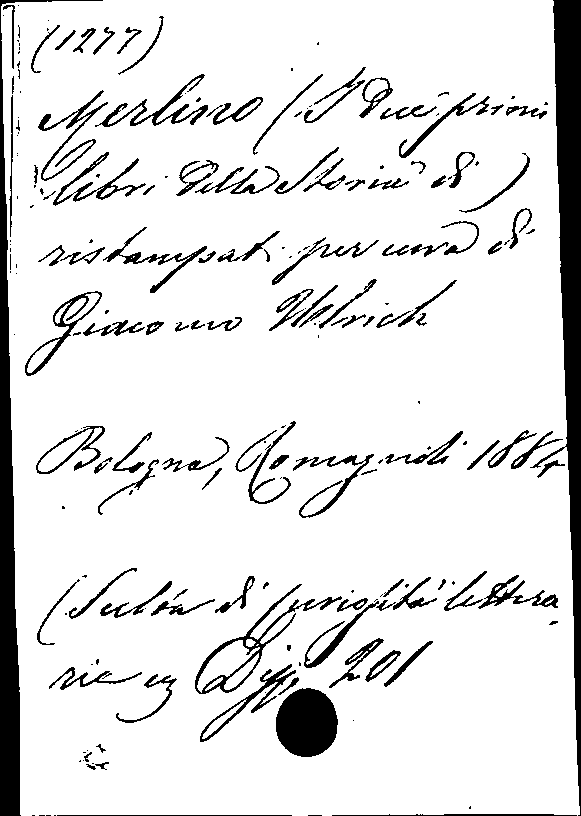 (1277)
Merlino (I due primi
libri della Storia di)
ristampati per cura di
Giacomo Ulrich
Bologna, Romagnoli 1884
(Scelta di curiosità lettera-
rie ez Disp. 201
C